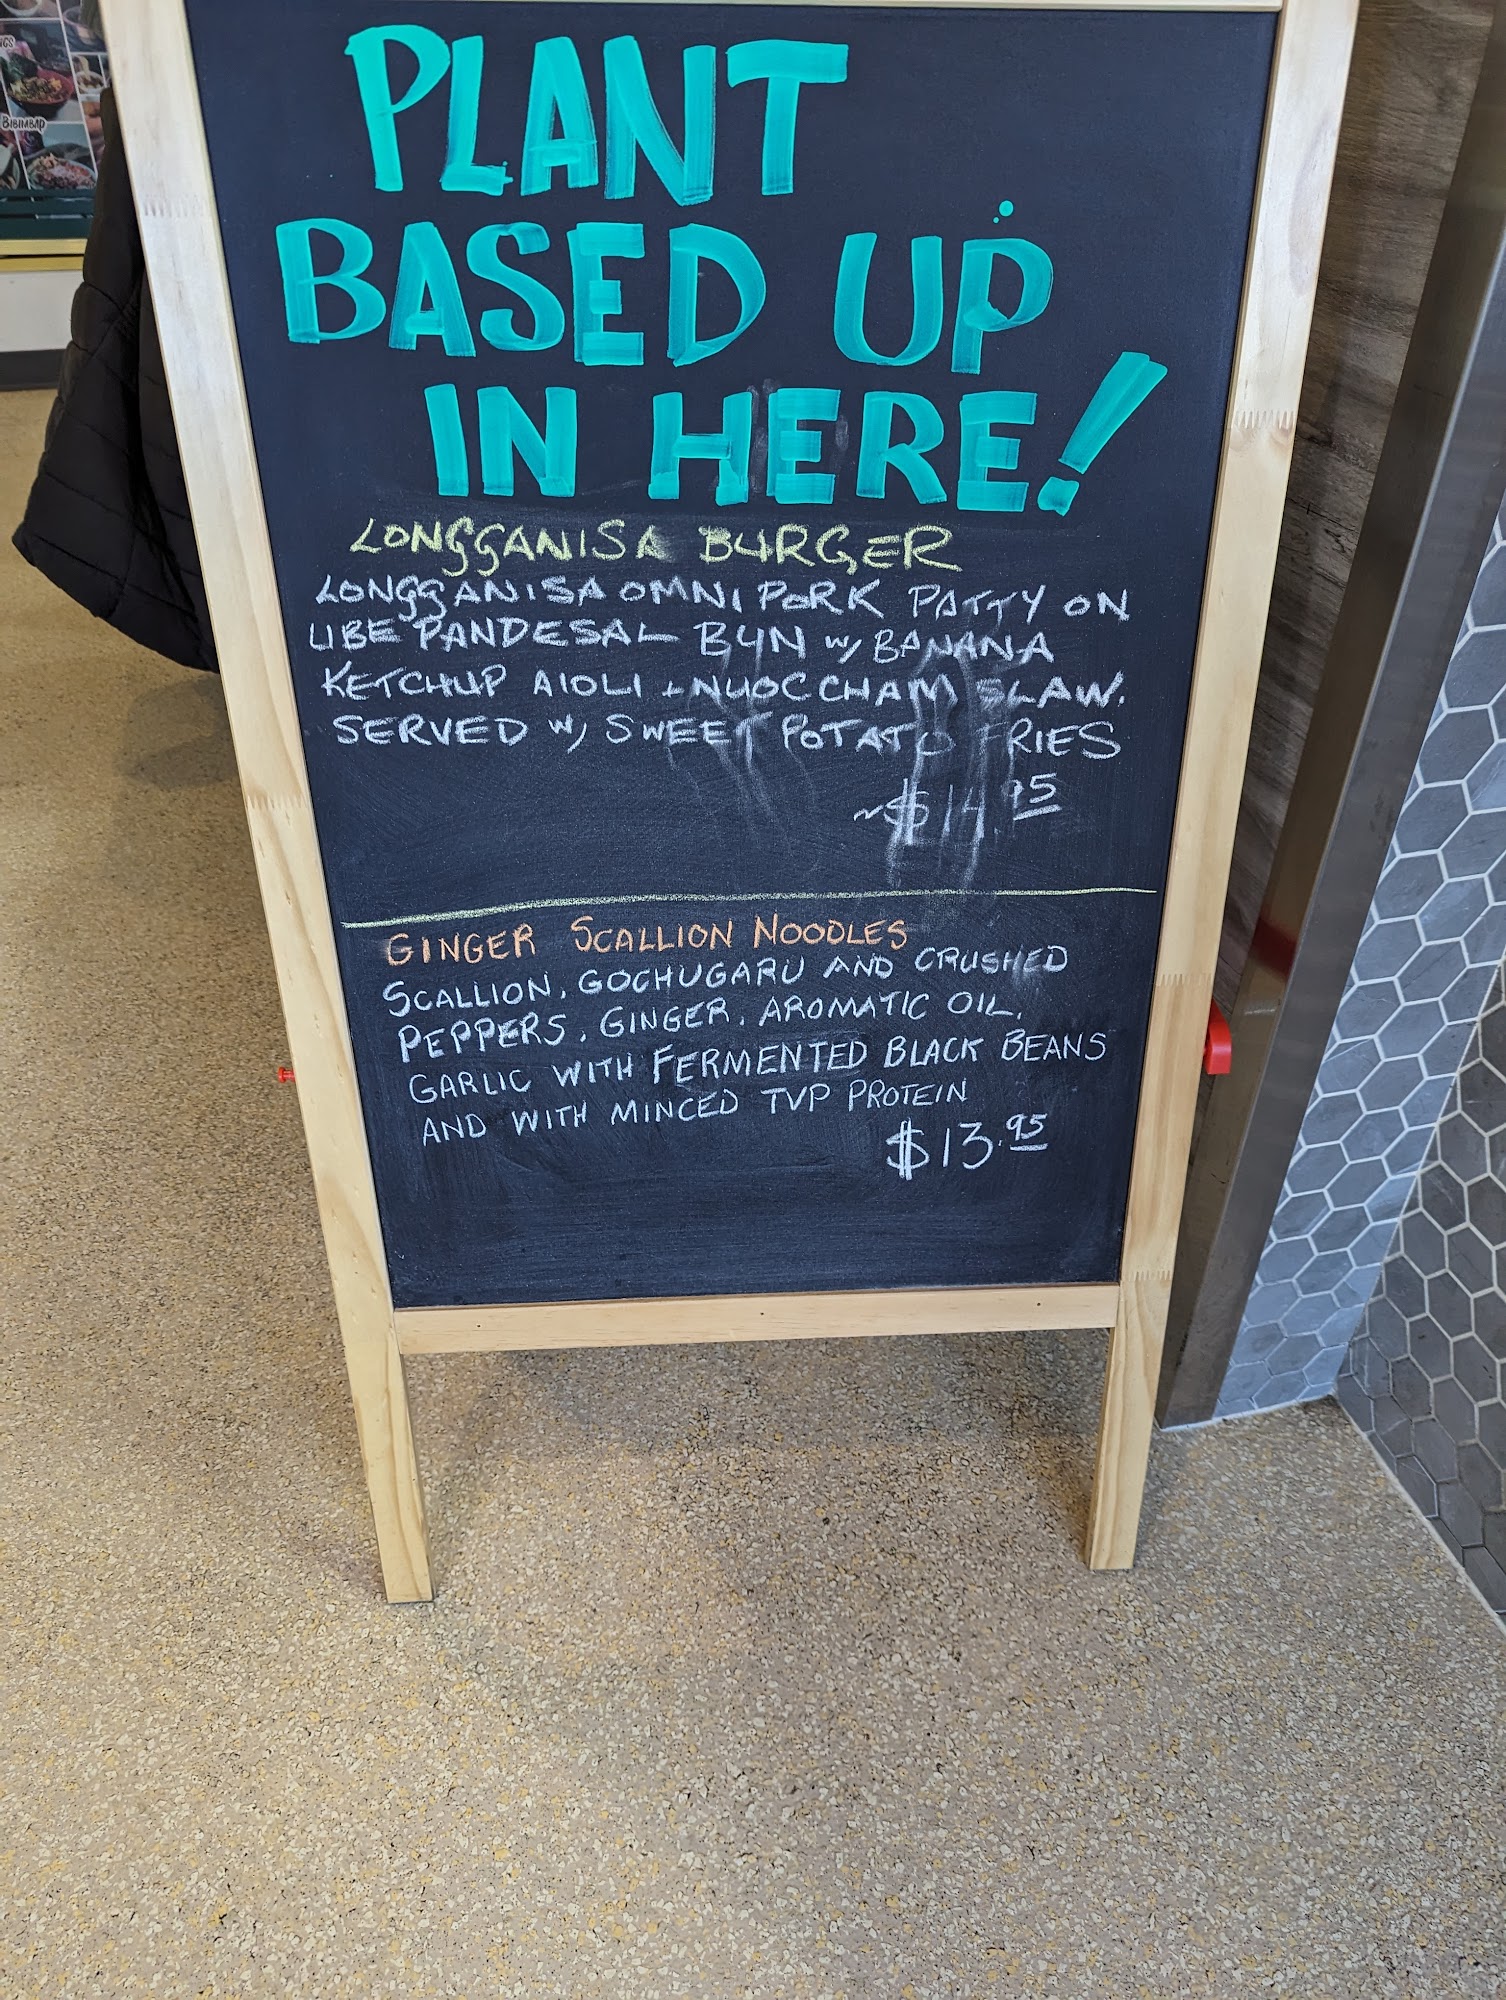 NGS
BIBIMBAP
PLANT
BASED UP
IN HERE!
LONGGANISA BURGER
LONGGANISA OMNI PORK PATTY ON
UBE PANDESAL BUN W/ BANANA
KETCHUP AIOLI + NUOC CHAM SLAW.
SERVED W/ SWEET POTATO FRIES
~$14.95
GINGER SCALLION NOODLES
SCALLION, GOCHUGARU AND CRUSHED
PEPPERS, GINGER, AROMATIC OIL,
GARLIC WITH FERMENTED BLACK BEANS
AND WITH MINCED TVP PROTEIN
$13.95